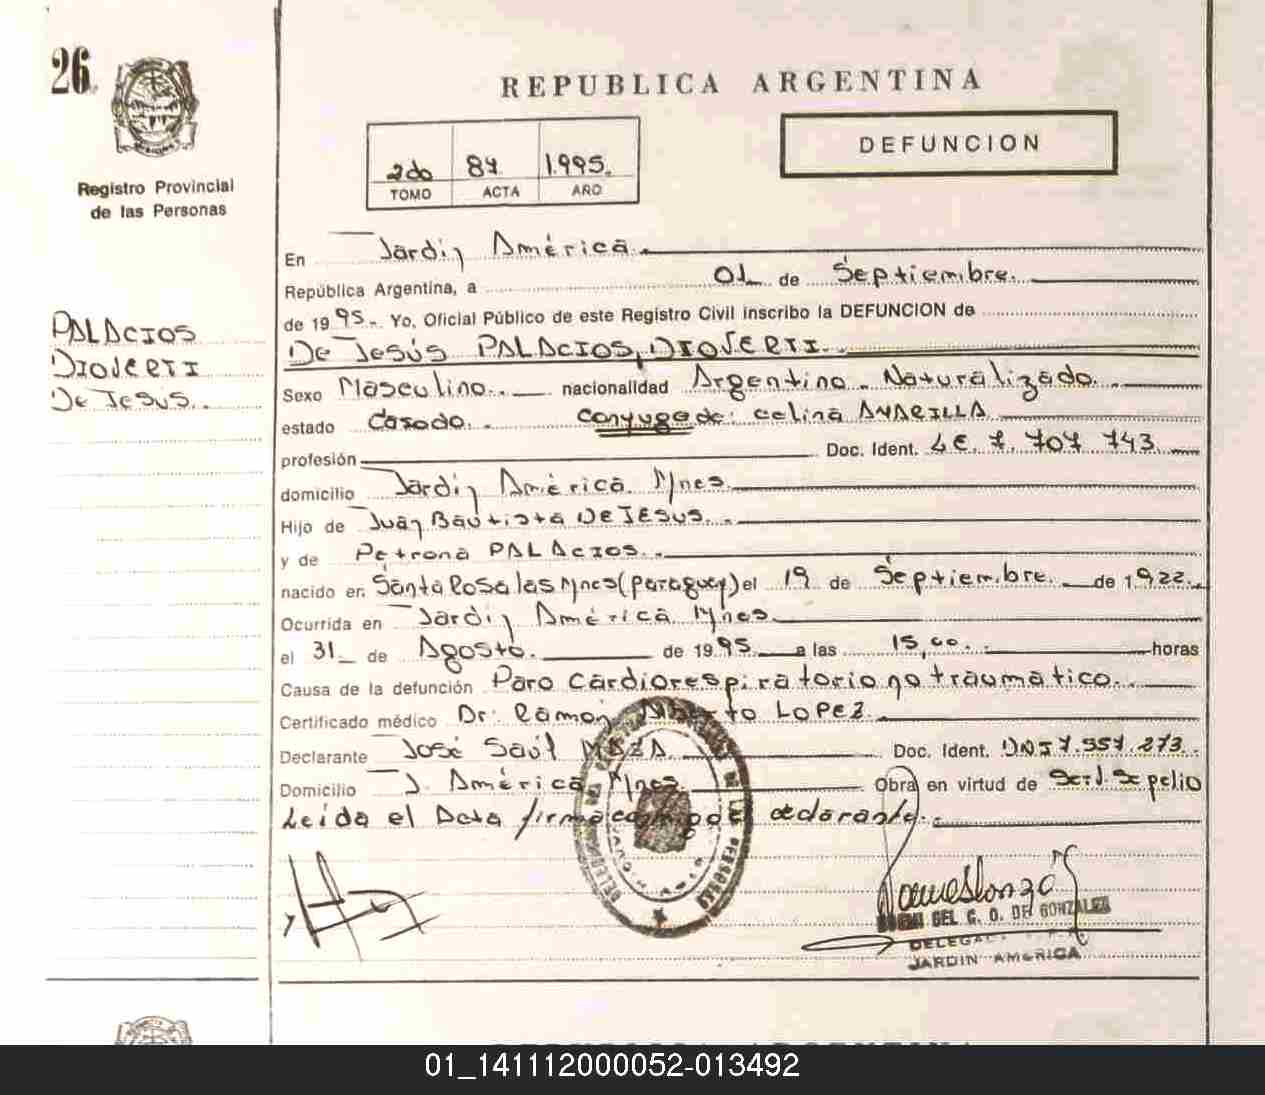 26
Registro Provincial
de las Personas
PALACIOS
DIOJERTI
De Jesus.
REPUBLICA ARGENTINA
DEFUNCION
2do 87 1.995.
TOMO ACTA AÑO
En Jardin América.
República Argentina, a 01 de Septiembre.
de 1995. Yo, Oficial Público de este Registro Civil inscribo la DEFUNCION de
De Jesús PALACIOS, DIOJERTI.
Sexo Masculino. nacionalidad Argentino. Naturalizado.
estado Casado. Conyuge de: Celina
profesión Doc. Ident. LE. 7.707.743.
domicilio Jardin América. Mnes.
Hijo de Juan Bautista DE JESUS.
y de Petrona PALACIOS.
nacido en Santa Rosa las Mnes (Paraguay) el 19 de Septiembre. de 1922.
Ocurrida en Jardin América Mnes.
el 31 de Agosto. de 1995 a las 15,00. horas
Causa de la defunción Paro Cardiorespiratorio no traumático.
Certificado médico Dr: Ramon Alberto LOPEZ.
Declarante José Saúl MAZA. Doc. Ident. DNI 7.557.273.
Domicilio J. América Mnes. Obra en virtud de Serv. Sepelio
Leida el Acta firma conmigo el declarante.
G. O. DE GONZALEZ
JARDIN AMERICA
01_141112000052-013492